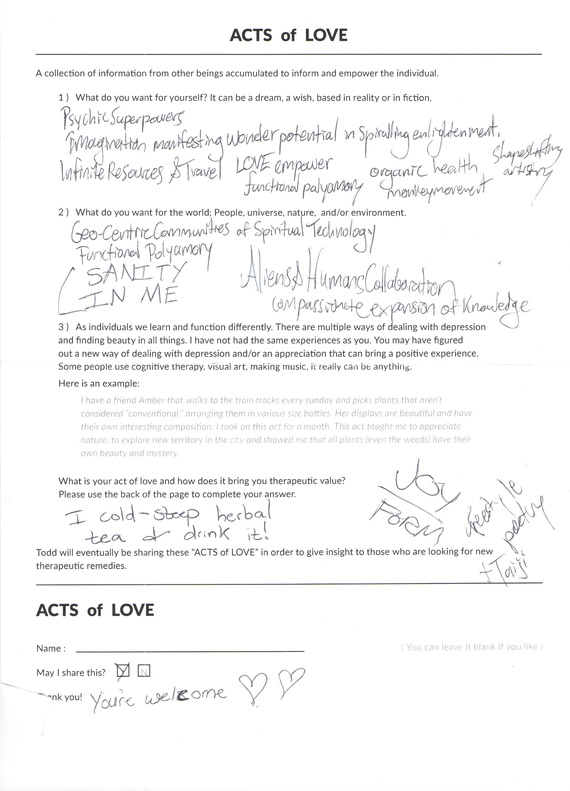 ACTS of LOVE
A collection of information from other beings accumulated to inform and empower the individual.
1 ) What do you want for yourself? It can be a dream, a wish, based in reality or in fiction.
Psychic Superpowers
Imagination manifesting wonder potential in Spiralling enlightenment.
Infinite Resources & Travel LOVE empower organic health Shapeshifting
functional polyamory monkey movement artistry
2 ) What do you want for the world; People, universe, nature, and/or environment.
Geo-Centric Communities of Spiritual Technology
Functional Polyamory
SANITY Aliens & Humans Collaboration
IN ME compassionate expansion of Knowledge
3 ) As individuals we learn and function differently. There are multiple ways of dealing with depression
and finding beauty in all things. I have not had the same experiences as you. You may have figured
out a new way of dealing with depression and/or an appreciation that can bring a positive experience.
Some people use cognitive therapy, visual art, making music, it really can be anything.
Here is an example:
I have a friend Amber that walks to the train tracks every sunday and picks plants that aren't
considered "conventional," arranging them in various size bottles. Her displays are beautiful and have
their own interesting composition. I took on this act for a month. This act taught me to appreciate
nature, to explore new territory in the city and showed me that all plants (even the weeds) have their
own beauty and mystery.
What is your act of love and how does it bring you therapeutic value?
Please use the back of the page to complete your answer.
JOY
FORM
freestyle
poetry
I cold-steep herbal
tea & drink it!
Todd will eventually be sharing these "ACTS of LOVE" in order to give insight to those who are looking for new
therapeutic remedies.
ACTS of LOVE
Name : ( You can leave it blank if you like )
May I share this? Y N
Thank you! You're welcome